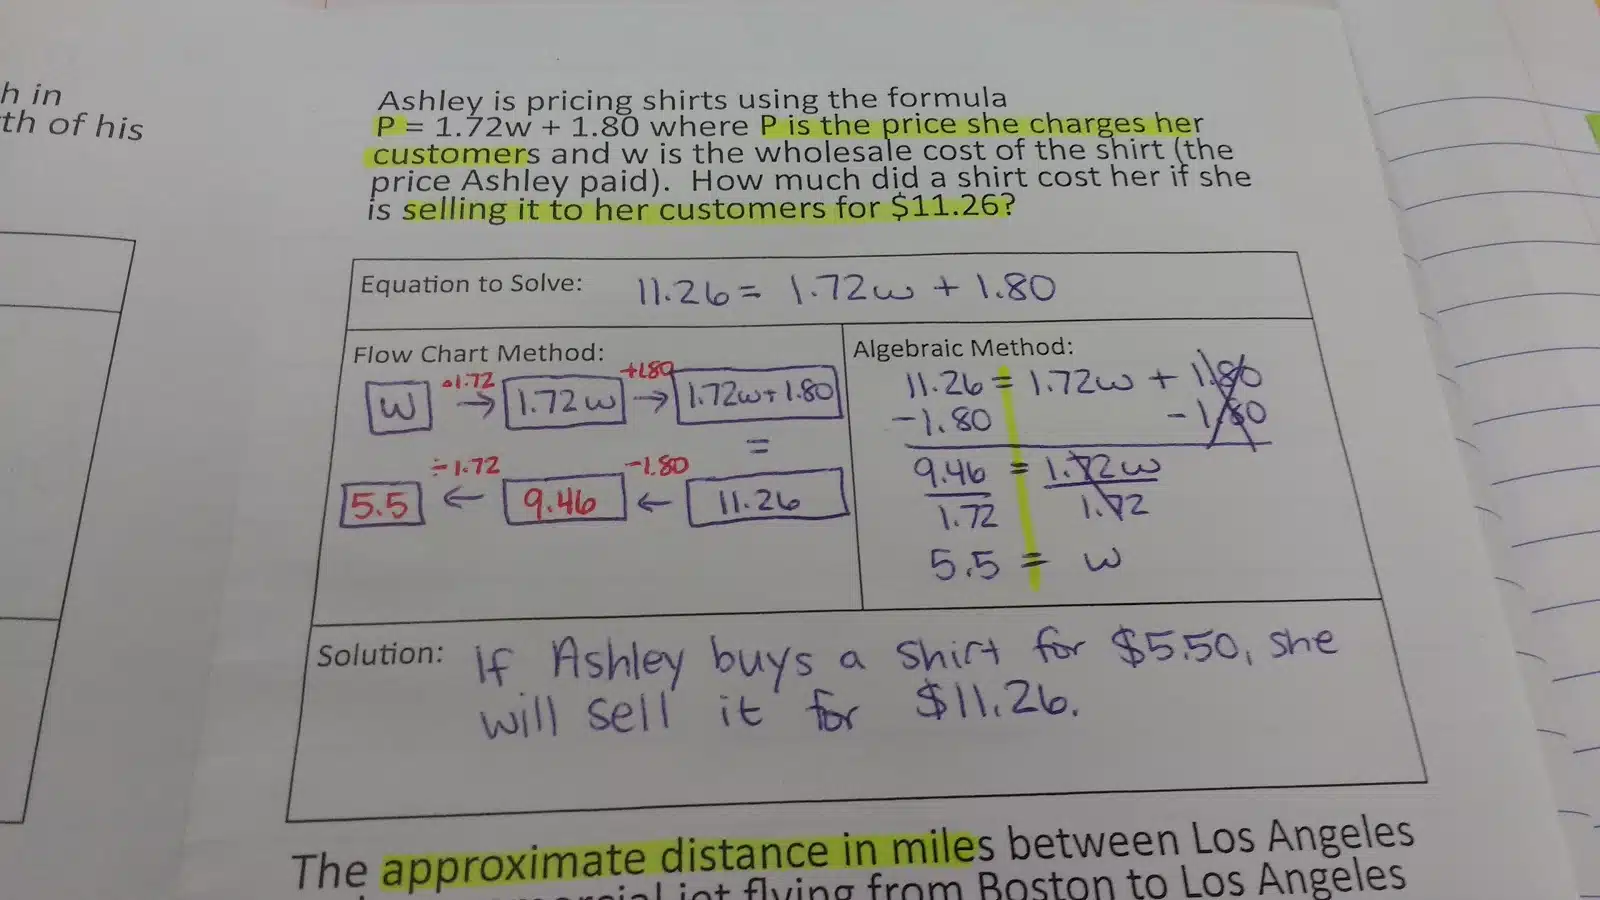 h in
th of his
Ashley is pricing shirts using the formula
P = 1.72w + 1.80 where P is the price she charges her
customers and w is the wholesale cost of the shirt (the
price Ashley paid). How much did a shirt cost her if she
is selling it to her customers for $11.26?
Equation to Solve: 11.26 = 1.72w + 1.80
Flow Chart Method:
•1.72 +1.80
w → 1.72w → 1.72w+1.80
=
÷1.72 -1.80
5.5 ← 9.46 ← 11.26
Algebraic Method:
11.26 = 1.72w + 1.80
-1.80 -1.80
9.46 = 1.72w
1.72 1.72
5.5 = w
Solution: If Ashley buys a shirt for $5.50, she
will sell it for $11.26.
The approximate distance in miles between Los Angeles
jet flying from Boston to Los Angeles